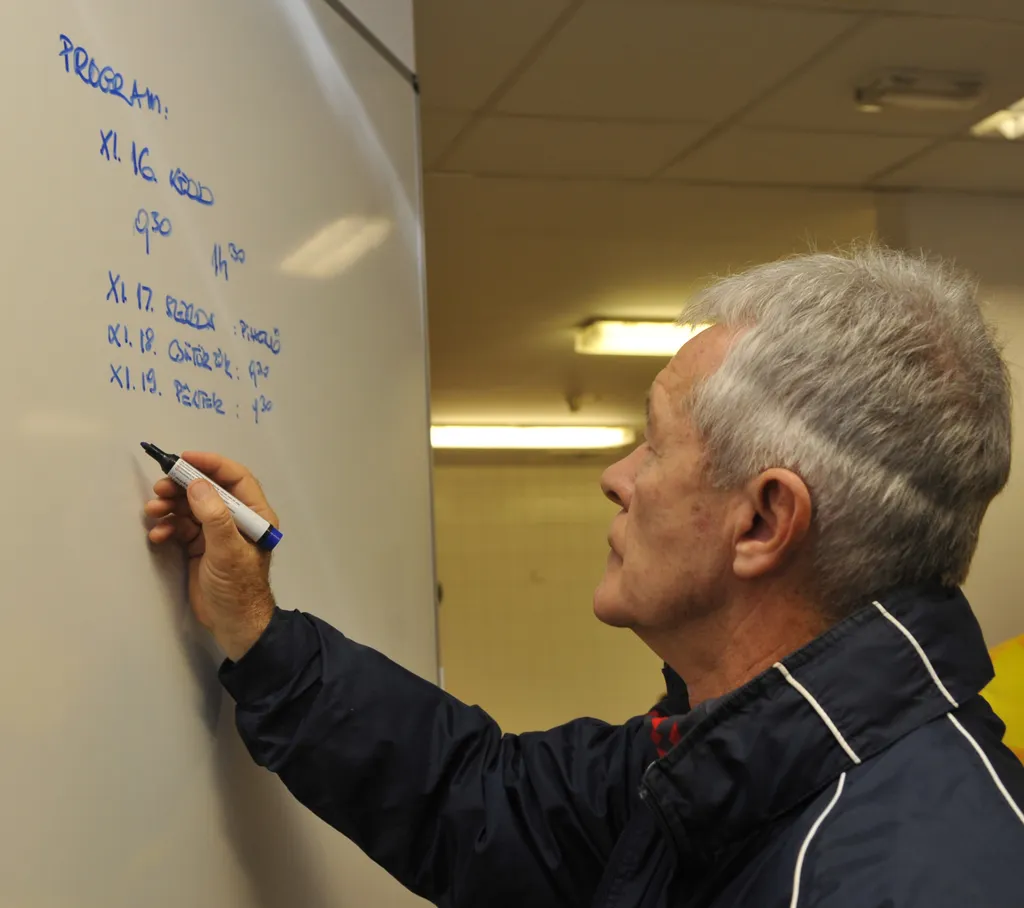 PROGRAM:
XI. 16. KEDD
9³⁰ 14³⁰
XI. 17. SZERDA : PIHENŐ
XI. 18. CSÜTÖRTÖK: 9³⁰
XI. 19. PÉNTEK : 9³⁰